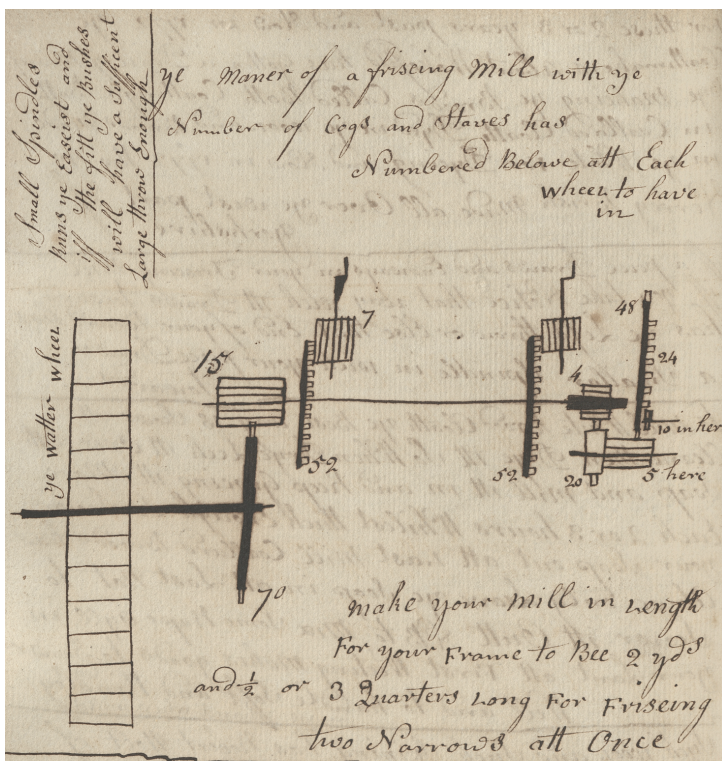 Small Spindles
Runs ye Easeist and
iff the fitt ye Bushes
will have a Sufficent
Large throw Enough
ye Maner of a friseing Mill with ye
Number of Cogs and Staves has
Numbered Belowe att Each
wheel to have
in
ye watter wheel
15
7
52
70
52
4
48
24
10 in her
5 here
20
make your Mill in Length
For your Frame to Bee 2 yds
and ½ or 3 Quarters Long For Friseing
two Narrows att Once